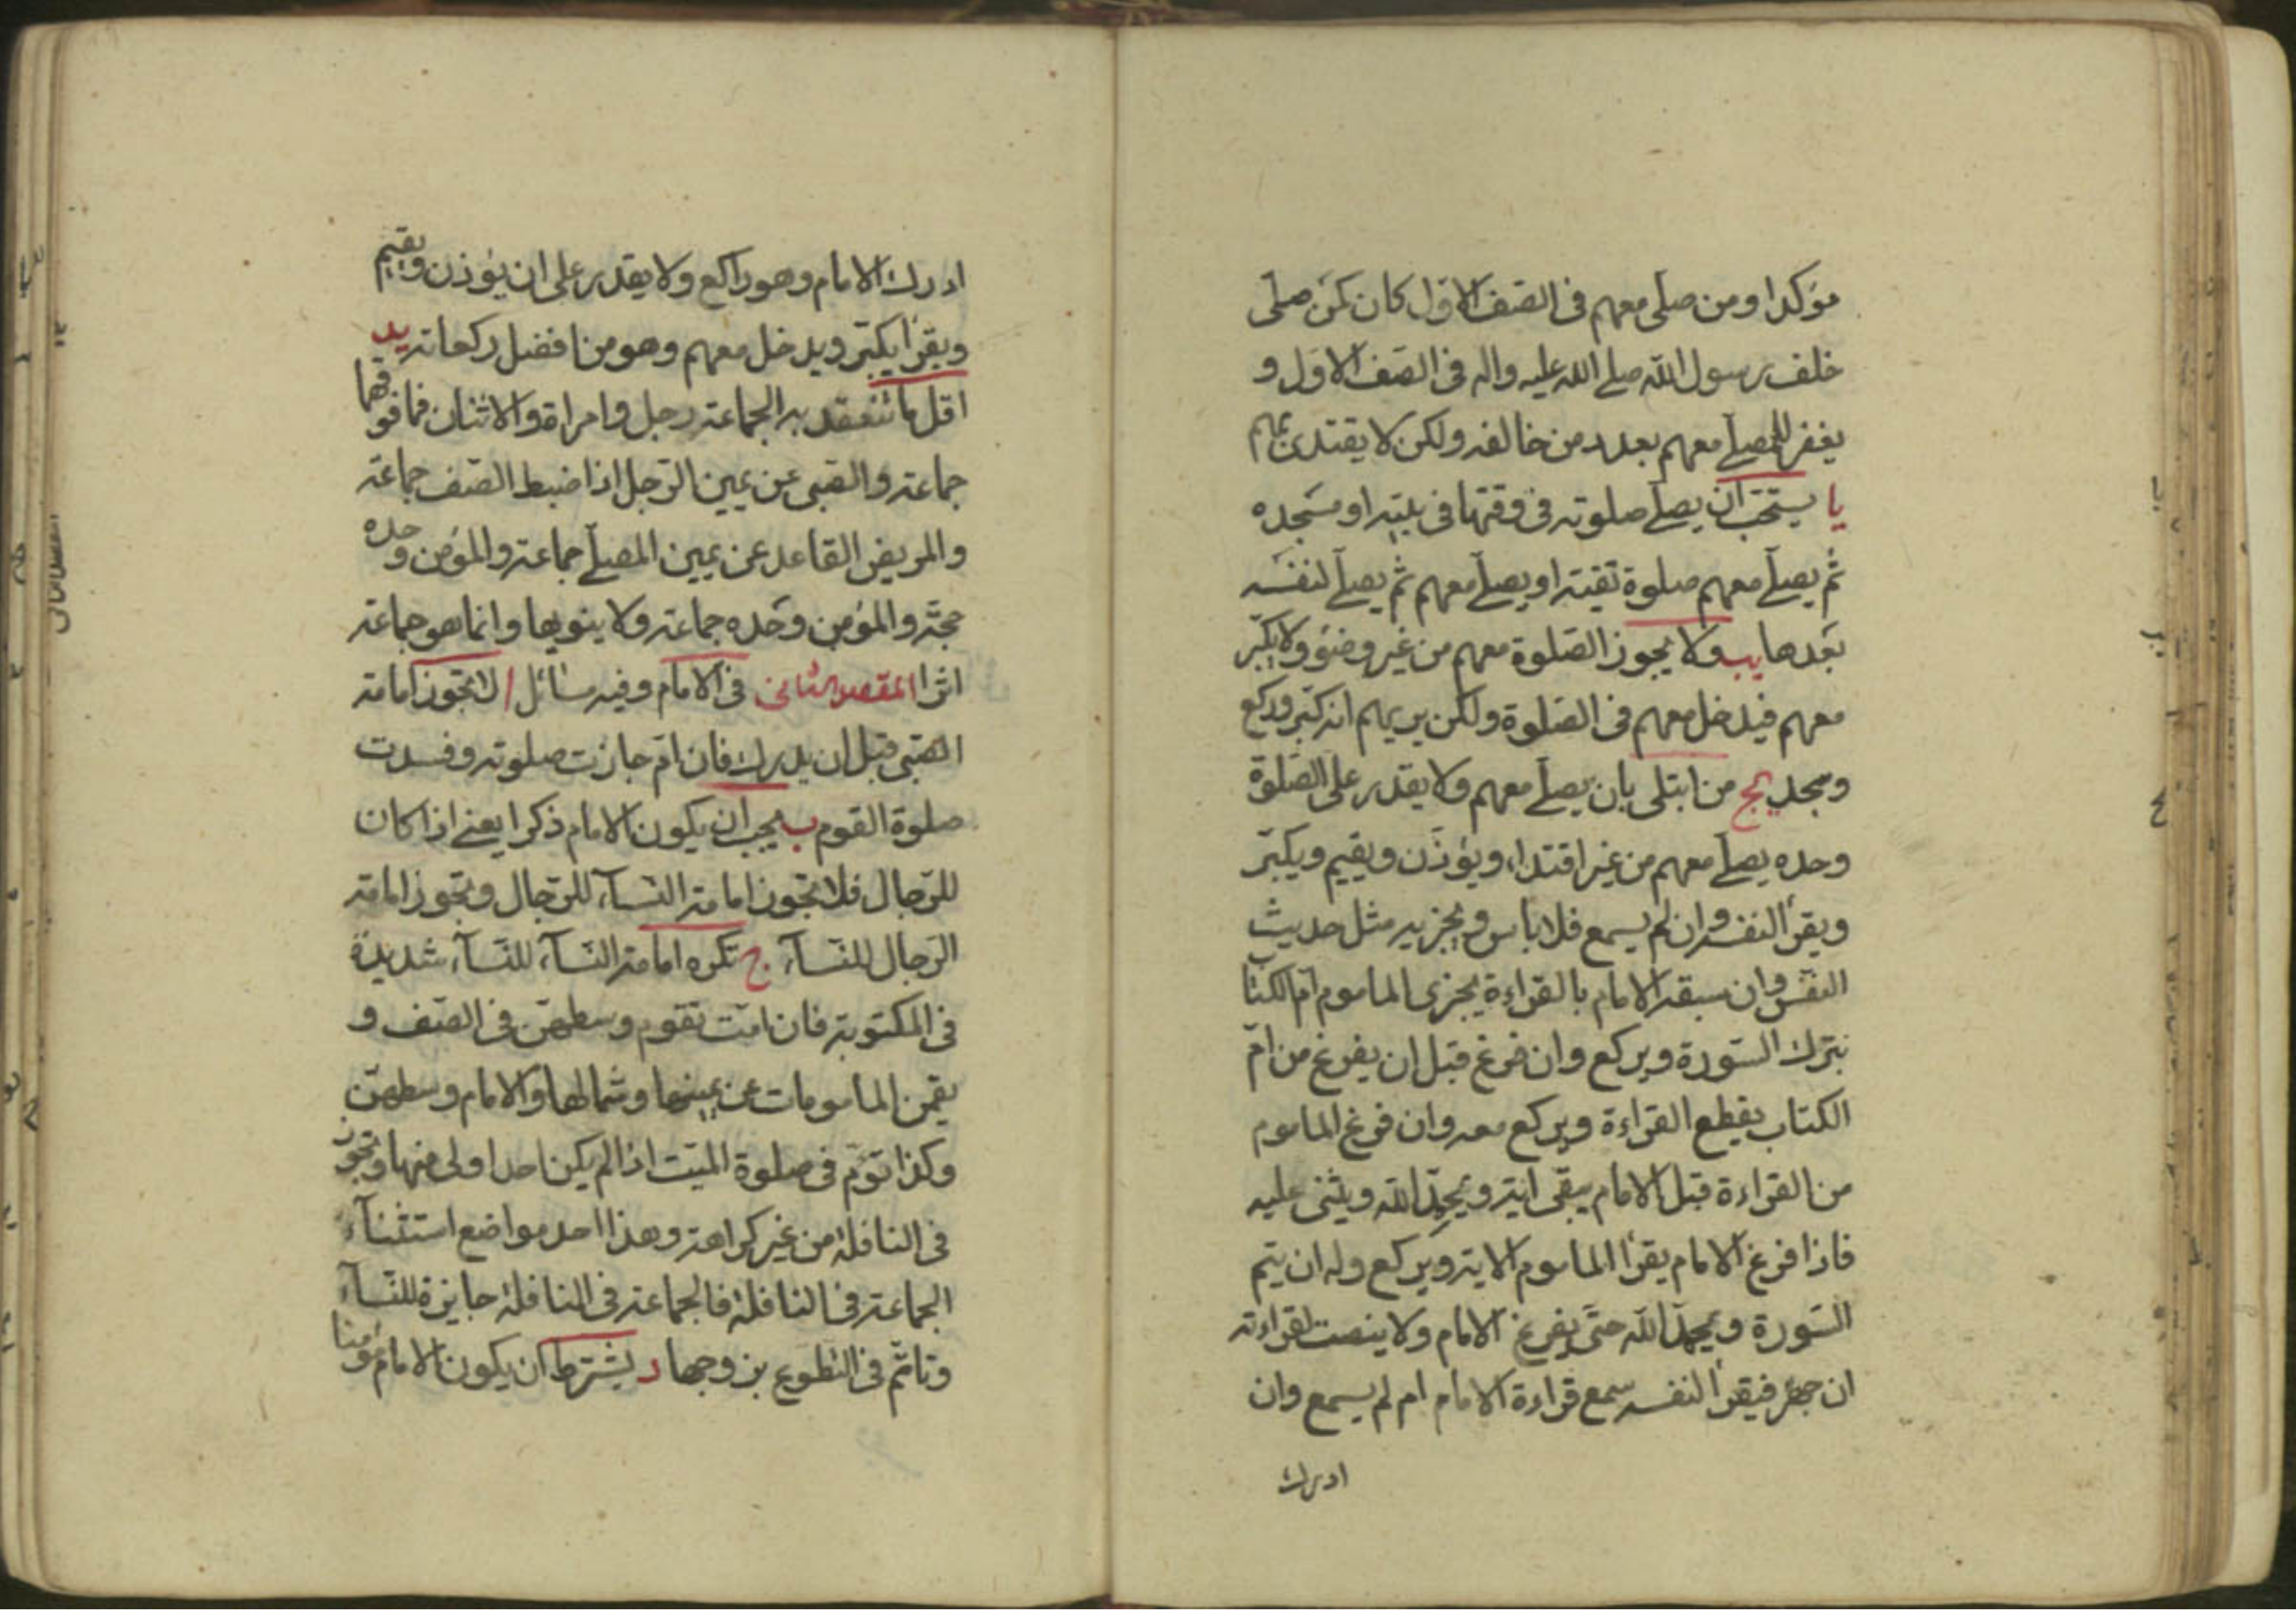 مؤكدا ومن صلى معهم فى الصف الاول كان كمن صلى
خلف رسول الله صلى الله عليه واله فى الصف الاول و
يغفر للمصلي معهم بعدد من خالفه ولكن لا يقتدى بهم
يا يستحب ان يصلي صلوته فى وقتها فى بيته او مسجده
ثم يصلي معهم صلوة تقية او يصلي معهم ثم يصلي لنفسه
بعدها يب ولا يجوز الصلوة معهم من غير وضوء ولا يكبر
معهم فيدخل معهم فى الصلوة ولكن يريهم انه كبر وركع
وسجد يج من ابتلى بان يصلي معهم ولا يقدر على الصلوة
وحده يصلي معهم من غير اقتداء ويؤذن ويقيم ويكبر
ويقرأ لنفسه وان لم يسمع فلا باس ويجزيه مثل حديث
النفس وان سبقه الامام بالقراءة يجزى الماموم ام الكتاب
يترك السورة ويركع وان فرغ قبل ان يفرغ من ام
الكتاب يقطع القراءة ويركع معه وان فرغ الماموم
من القراءة قبل الامام يبقى اية ويحمد الله ويثنى عليه
فاذا فرغ الامام يقرأ الماموم الاية ويركع وله ان يتم
السورة ويحمد الله حتى يفرغ الامام ولا ينصت لقراءته
ان جهر فيقرأ لنفسه سمع قراءة الامام ام لم يسمع وان
ادرك
ادرك الامام وهو راكع ولا يقدر على ان يؤذن ويقيم
ويقرأ يكبر ويدخل معهم وهو من افضل ركعاته يد
اقل ما تنعقد به الجماعة رجل وامراة والاثنان فما فوقهما
جماعة والصبى عن يمين الرجل اذا ضبط الصف جماعة
والمريض القاعد عن يمين المصلي جماعة والمؤمن وحده
حجة والمؤمن وحده جماعة ولا ينويها وانما هو جماعة
اثرا المقصد الثانى فى الامام وفيه مسائل ا لا تجوز امامة
الصبى قبل ان يدرك فان ام جازت صلوته وفسدت
صلوة القوم ب يجب ان يكون الامام ذكرا يعنى اذا كان
للرجال فلا تجوز امامة النسآء للرجال وتجوز امامة
الرجال للنسآء ج تكره امامة النسآء للنسآء شديدة
فى المكتوبة فان امت تقوم وسطهن فى الصف و
يقمن المامومات عن يمينها وشمالها والامام وسطهن
وكذا تؤم فى صلوة الميت اذا لم يكن احد اولى منها وتجوز
فى النافلة من غير كراهة وهذا احد مواضع استثنآء
الجماعة فى النافلة فالجماعة فى النافلة جايزة للنسآء
وتاتم فى التطوع بزوجها د يشترط ان يكون الامام مؤمنا